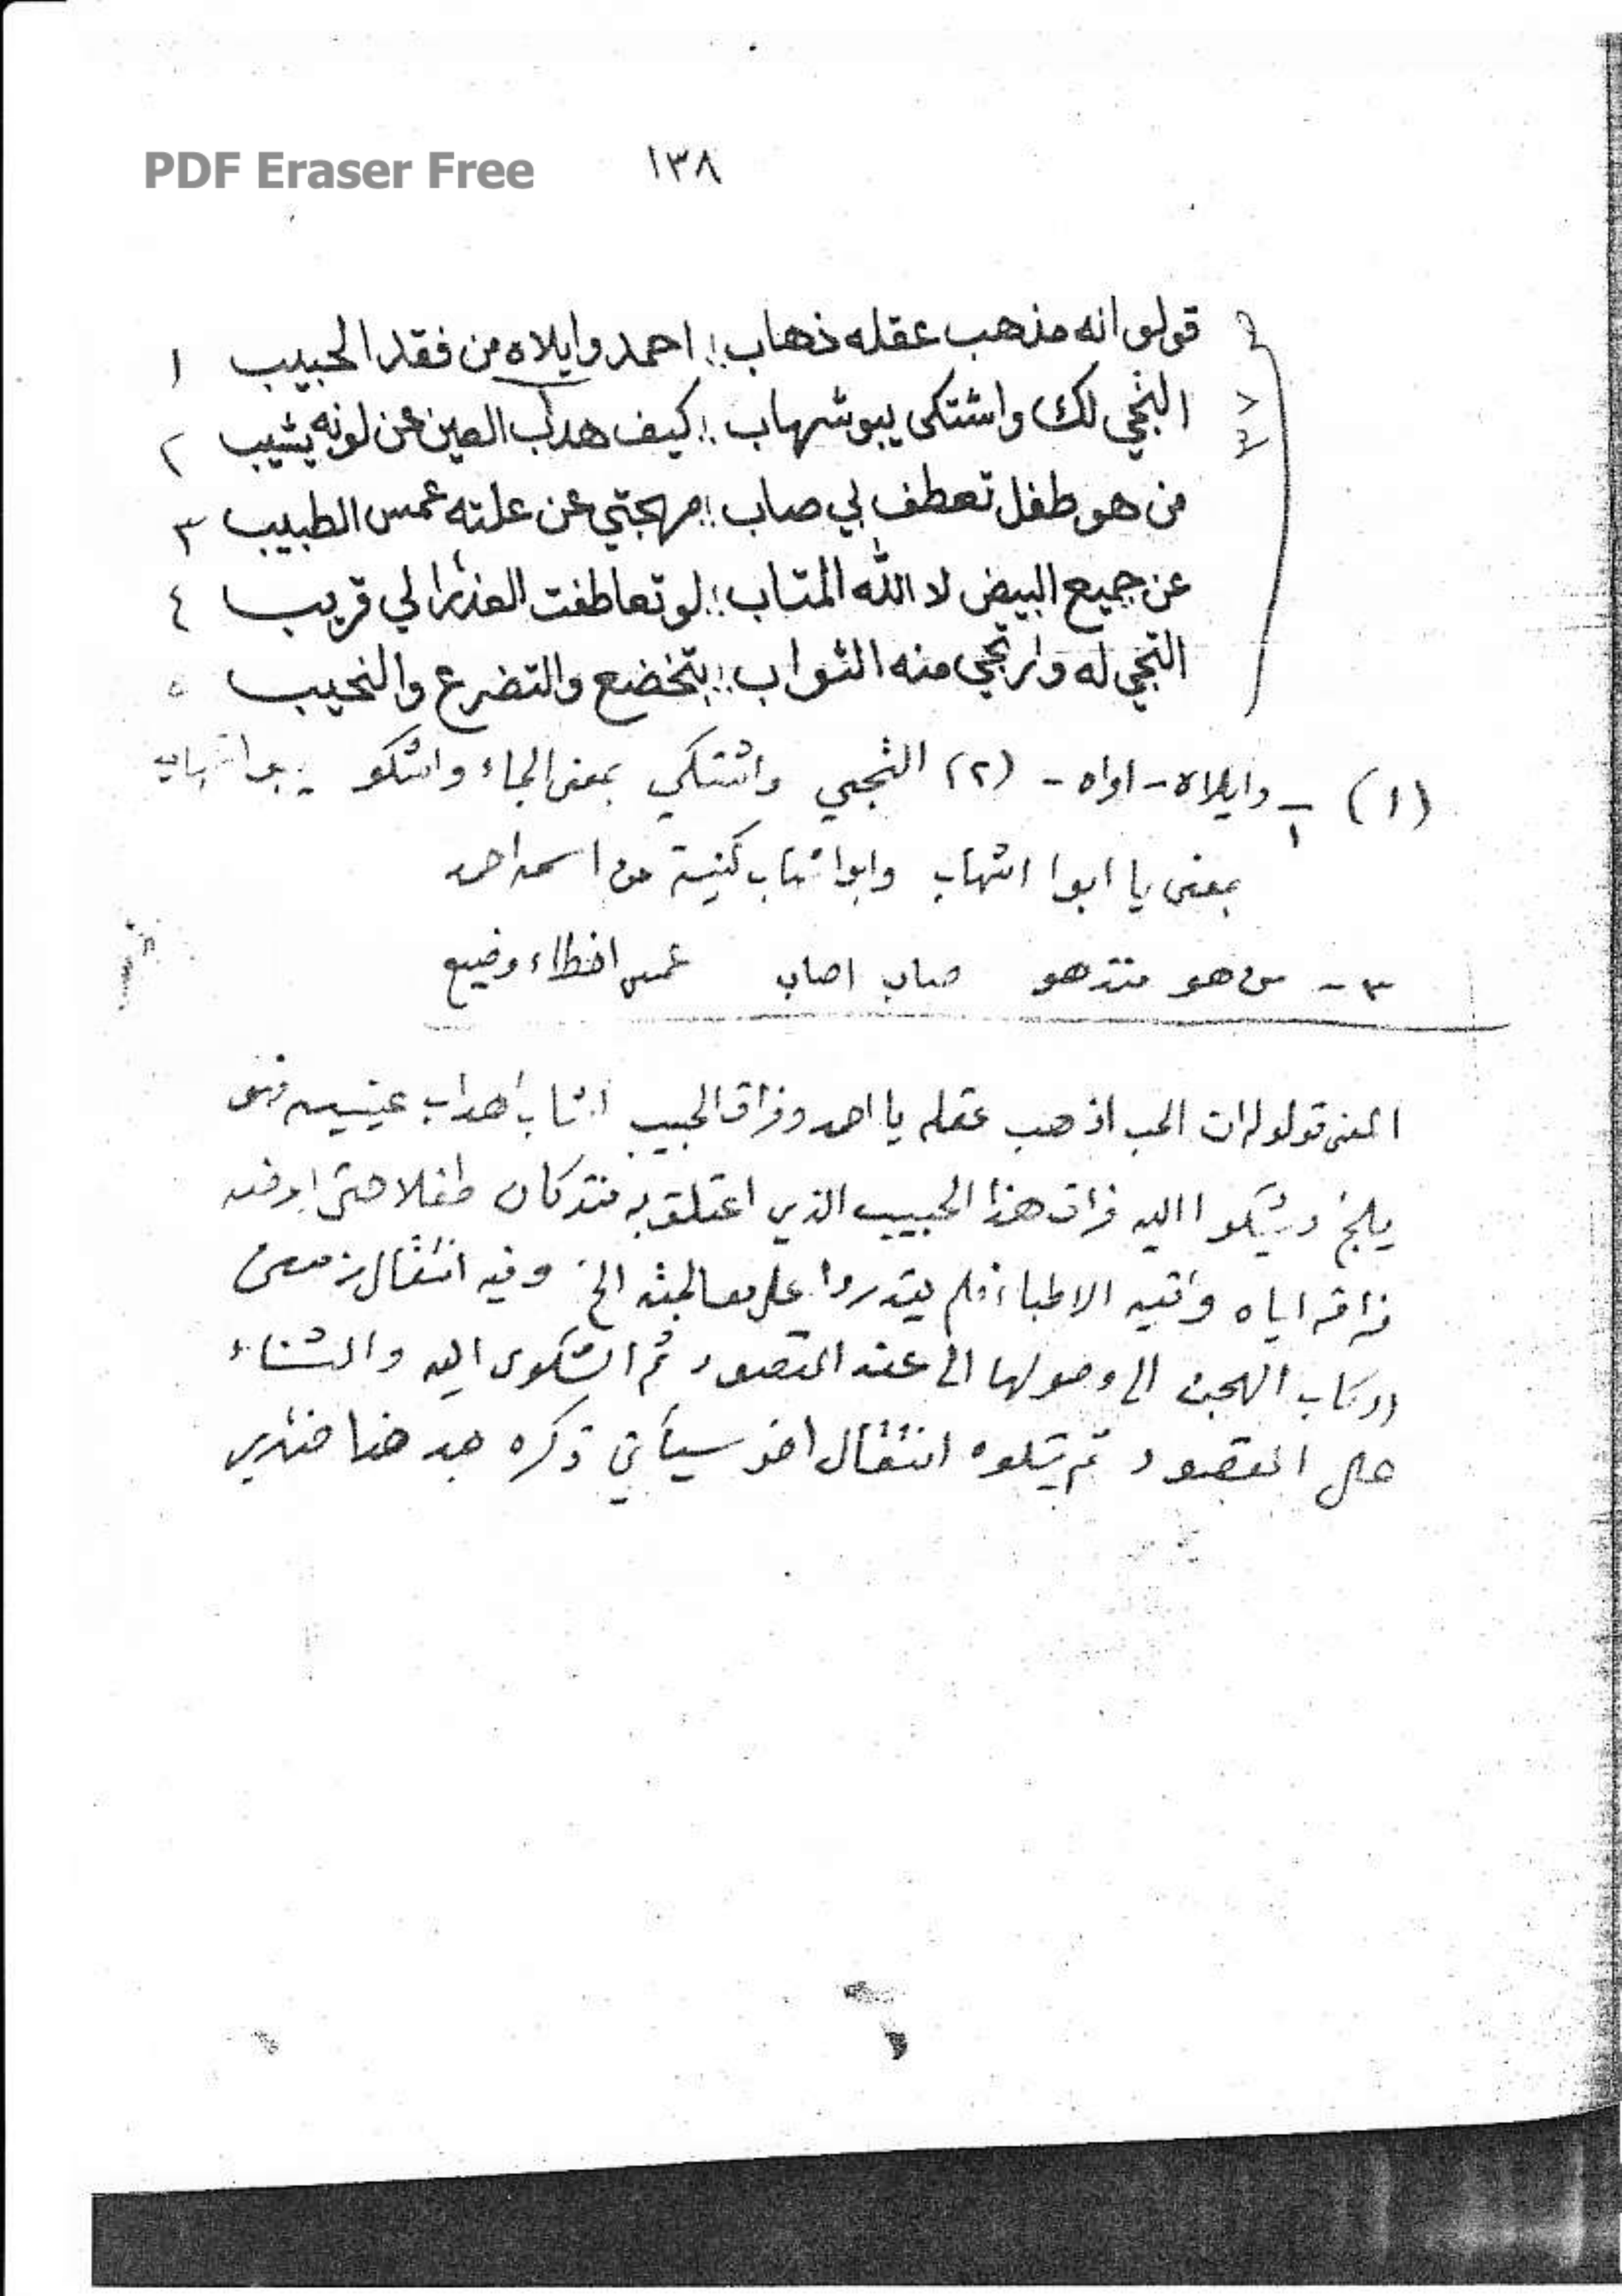 PDF Eraser Free
١٣٨
قولو انه مذهب عقله ذهاب؛؛ احمد وايلاه من فقد الحبيب ١
التجي لك واشتكى يبو شهاب؛؛ كيف هداب العين عن لونه يشيب ٢
من هو طفل تعطف لي صاب؛؛ مهجتي عن علته غمس الطبيب ٣
عن جميع البيض لا الله المتاب؛؛ لو تعاطفت العذرا لي قريب ٤
التجي له وارتجي منه الثواب؛؛ بتخضع والتضرع والنحيب ٥
٣٧
(١) ١ - وايلاه - اواه - (٢) التجي واشتكي بمعنى الجاء واشكو
بمعنى يا ابوا اشهاب وابوا شهاب كنية من اسمه احمد
٣ - من هو منذ هو صاب اصاب غمس اخطاء وضيع
المعنى قولوا له ان الحب اذهب عقله يا احمد وفراق الحبيب اشاب اهداب عينيه فهو
يلجئ ويشكوا اليه فراق هذا الحبيب الذي اعتلق به منذ كان طفلا حتى
فراقه اياه الاطباء فلم يقدروا على معالجته الخ وفيه انتقال من
اركاب الهجن الى وصولها الى عند المقصود ثم الشكوى اليه والثناء
على المقصود ثم يتلوه انتقال اخر سيأتي ذكره بعد هذا